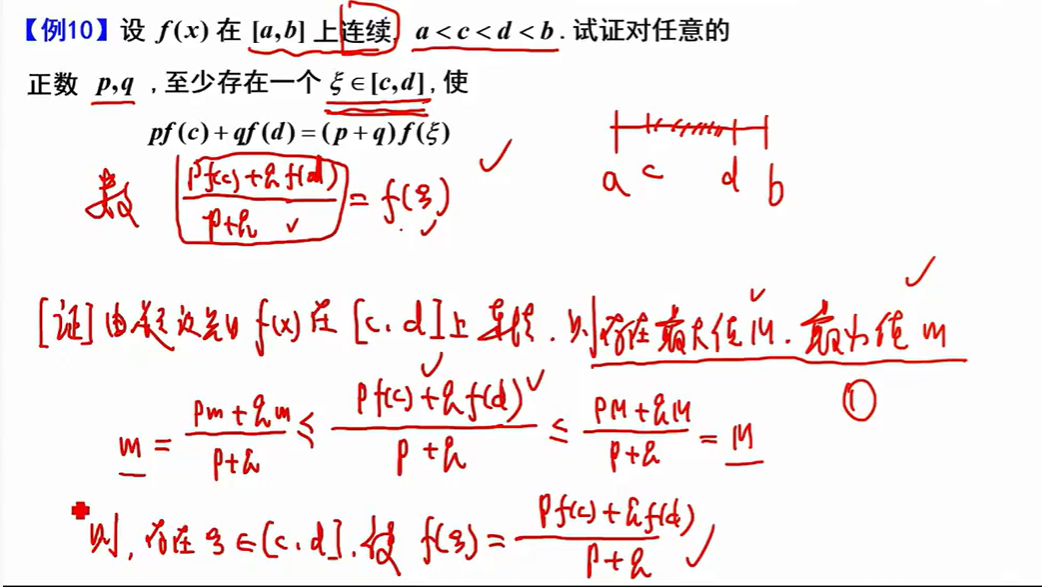 【例10】设 f(x) 在 [a,b] 上连续, a<c<d<b. 试证对任意的
正数 p,q ,至少存在一个 ξ∈[c,d],使
pf(c)+qf(d)=(p+q)f(ξ)
a c d b
数 (pf(c)+qf(d))/(p+q) = f(ξ)
[证] 由题设知 f(x) 在 [c,d] 上连续. 则存在最大值 M. 最小值 m
①
m = (pm+qm)/(p+q) ≤ (pf(c)+qf(d))/(p+q) ≤ (pM+qM)/(p+q) = M
则, 存在 ξ∈[c,d], 使 f(ξ) = (pf(c)+qf(d))/(p+q)